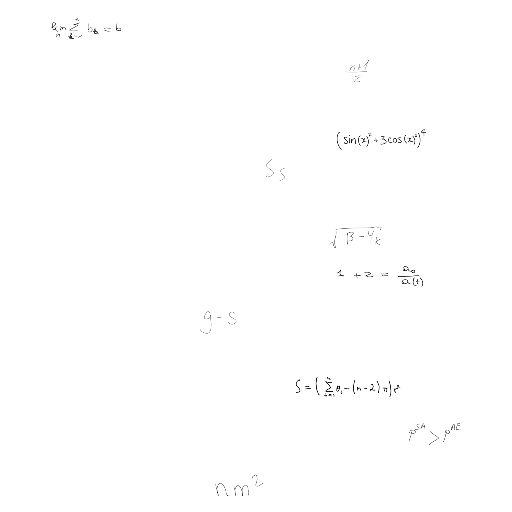 lim_n ∑ b_k = b
(n+1)/2
(sin(x)² + 3cos(x)²)⁴
S_S
√(β - Y_k)
1 + z = a₀/a(t)
g - s
S = (∑ θ_i - (n-2)π) r²
p^{SA} > p^{AE}
nm²